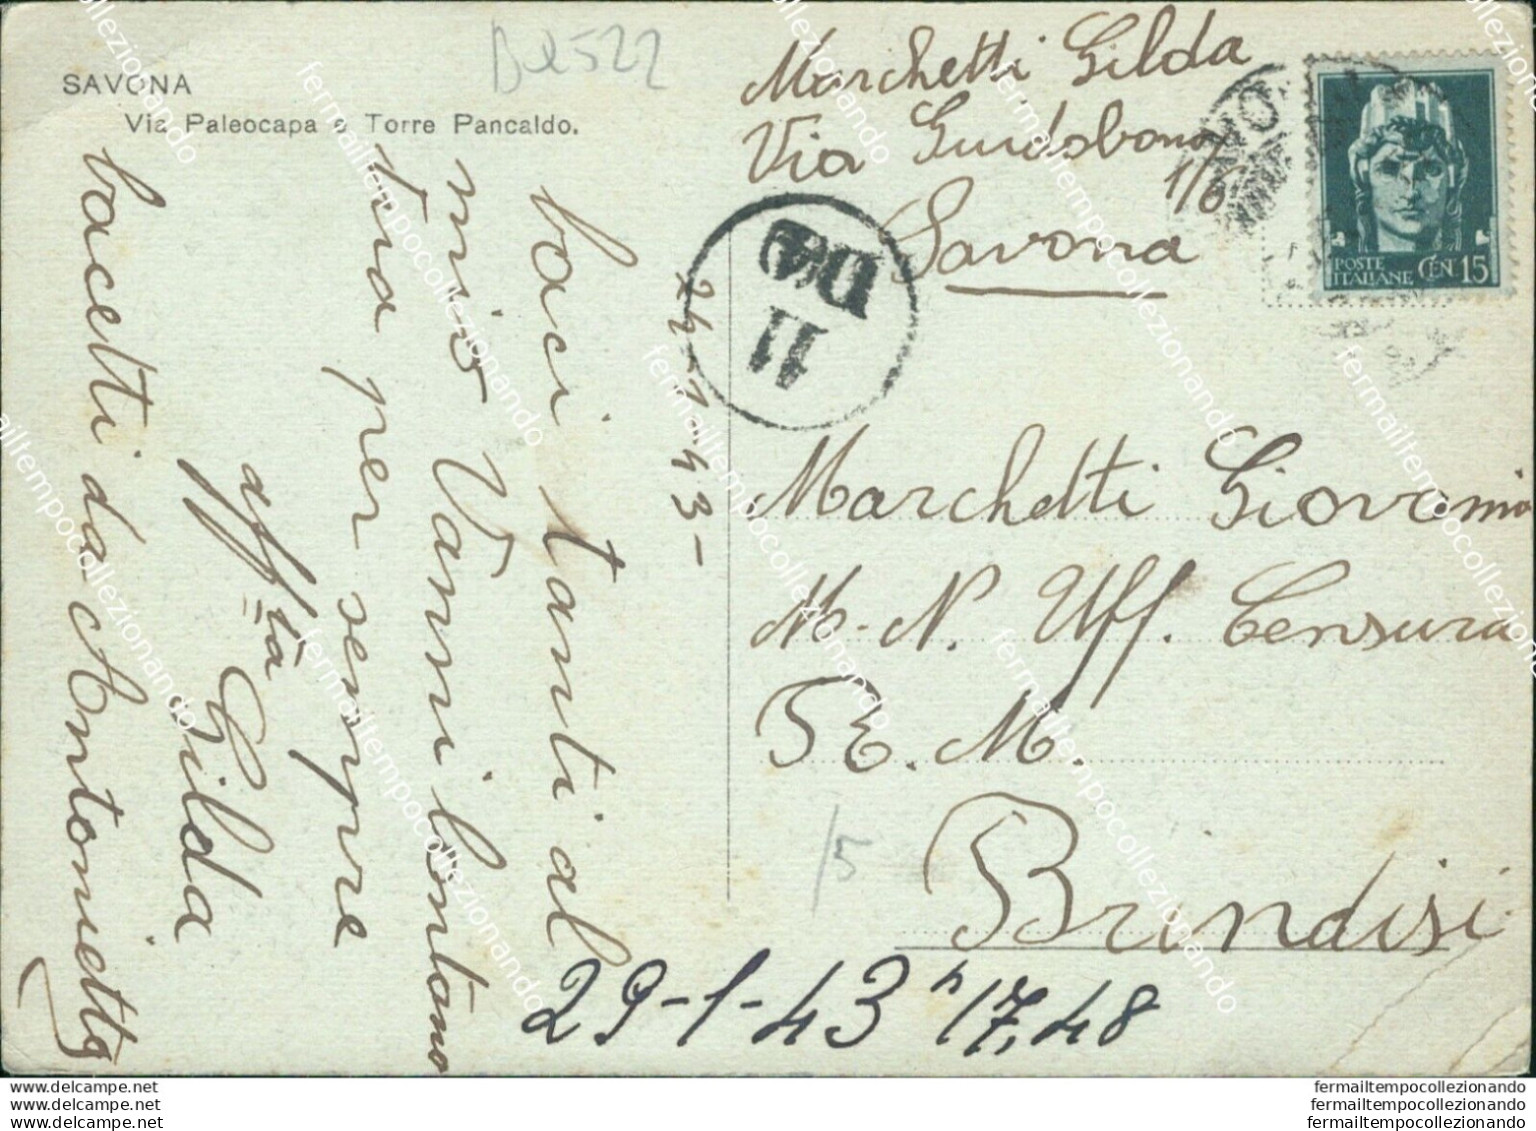 SAVONA
Via Paleocapa e Torre Pancaldo.
Marchetti Gilda
Via Guidobono
1/6
Savona
POSTE
ITALIANE CEN 15
11
D49
24-1-43-
baci tanti al
mio Vanni lontano
tua per sempre
aff=tà Gilda
bacetti da Antonietta
Marchetti Giovanni
M.N. Uff. Censura
M.
Brindisi
/5
29-1-43 h 17,48
www.delcampe.net
www.delcampe.net
www.delcampe.net
fermailtempocollezionando
fermailtempocollezionando
fermailtempocollezionando